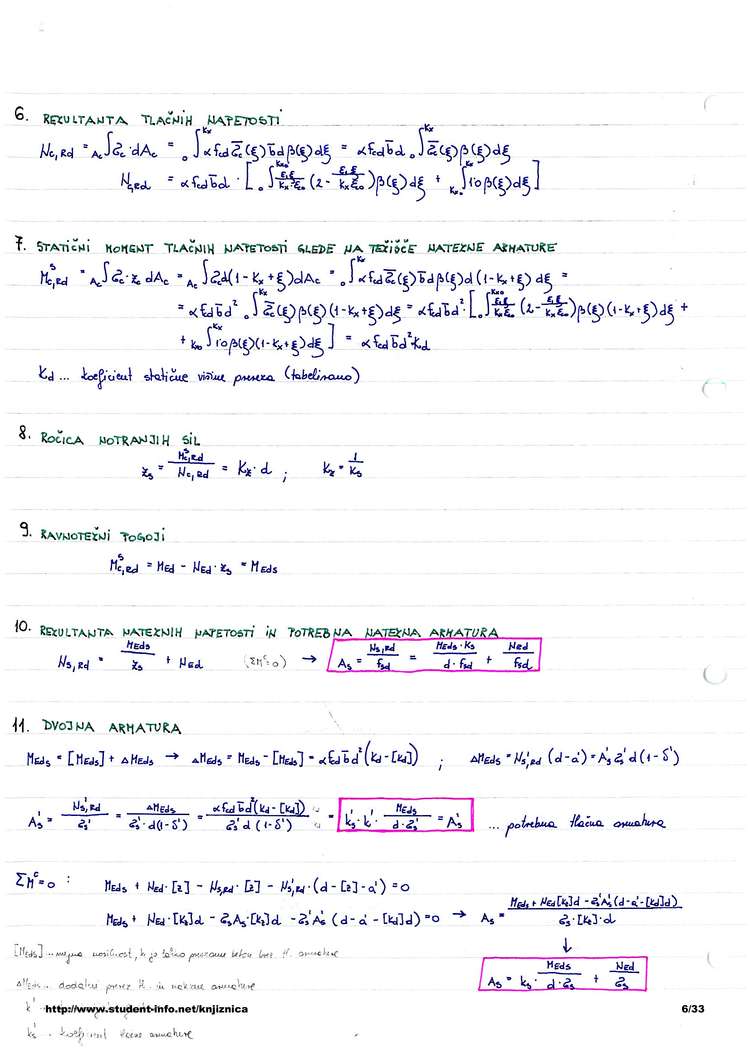 6. REZULTANTA TLAČNIH NAPETOSTI
N_c,Rd = _Ac∫σ_c·dA_c = _0∫^{Kx} α f_cd σ̄_c(ξ) b̄ d β(ξ) dξ = α f_cd b̄ d _0∫^{Kx} σ̄_c(ξ) β(ξ) dξ
N_c,Rd = α f_cd b̄ d · [ _0∫^{Kx0} ε_1 ξ / K_x ε_c0 (2 - ε_1 ξ / K_x ε_c0) β(ξ) dξ + _{Kx0}∫^{Kx} 1·0 β(ξ) dξ ]
7. STATIČNI MOMENT TLAČNIH NAPETOSTI GLEDE NA TEŽIŠČE NATEZNE ARMATURE
M^s_c,Rd = _Ac∫σ_c·z_c dA_c = _Ac∫σ_c d(1-K_x+ξ) dA_c = _0∫^{Kx} α f_cd σ̄_c(ξ) b̄ d β(ξ) d (1-K_x+ξ) dξ =
= α f_cd b̄ d² _0∫^{Kx} σ̄_c(ξ) β(ξ) (1-K_x+ξ) dξ = α f_cd b̄ d² · [ _0∫^{Kx0} ε_1 ξ / K_x ε_c0 (2 - ε_1 ξ / K_x ε_c0) β(ξ) (1-K_x+ξ) dξ +
+ _{Kx0}∫^{Kx} 1·0 β(ξ) (1-K_x+ξ) dξ ] = α f_cd b̄ d² k_d
K_d ... koeficient statične višine prereza (tabelirano)
8. ROČICA NOTRANJIH SIL
z_s = M^s_c,Rd / N_c,Rd = K_z · d ; K_z = 1 / K_s
9. RAVNOTEŽNI POGOJI
M^s_c,Rd = M_Ed - N_Ed · z_s = M_Eds
10. REZULTANTA NATEZNIH NAPETOSTI IN POTREBNA NATEZNA ARMATURA
N_s,Rd = M_Eds / z_s + N_Ed (ΣM^c=0) → A_s = N_s,Rd / f_sd = M_Eds · K_s / d · f_sd + N_Ed / f_sd
11. DVOJNA ARMATURA
M_Eds = [M_Eds] + ΔM_Eds → ΔM_Eds = M_Eds - [M_Eds] = α f_cd b̄ d² (k_d - [k_d]) ; ΔM_Eds = N_s',Rd (d-a') = A_s' σ_s' d (1-δ')
A_s' = N_s',Rd / σ_s' = ΔM_Eds / σ_s' · d(1-δ') = α f_cd b̄ d² (k_d - [k_d]) / σ_s' d (1-δ') = k_s' · k' · M_Eds / d·σ_s = A_s' ... potrebna tlačna armatura
ΣM^c=0 : M_Eds + N_Ed · [z] - N_s,Rd · [z] - N_s',Rd · (d - [z] - a') = 0
M_Eds + N_Ed · [k_z] d - σ_s A_s · [k_z] d - σ_s' A_s' (d - a' - [k_z] d) = 0 → A_s = M_Eds + N_Ed [k_z] d - σ_s' A_s' (d - a' - [k_z] d) / σ_s · [k_z] · d
↓
A_s = k_s · M_Eds / d·σ_s + N_Ed / σ_s
[M_Eds] ... mejna nosilnost, armature
ΔM_Eds ... dodatni prerez tl. in natezne armature
k'
http://www.student-info.net/knjiznica 6/33
k_s' - koeficient armature